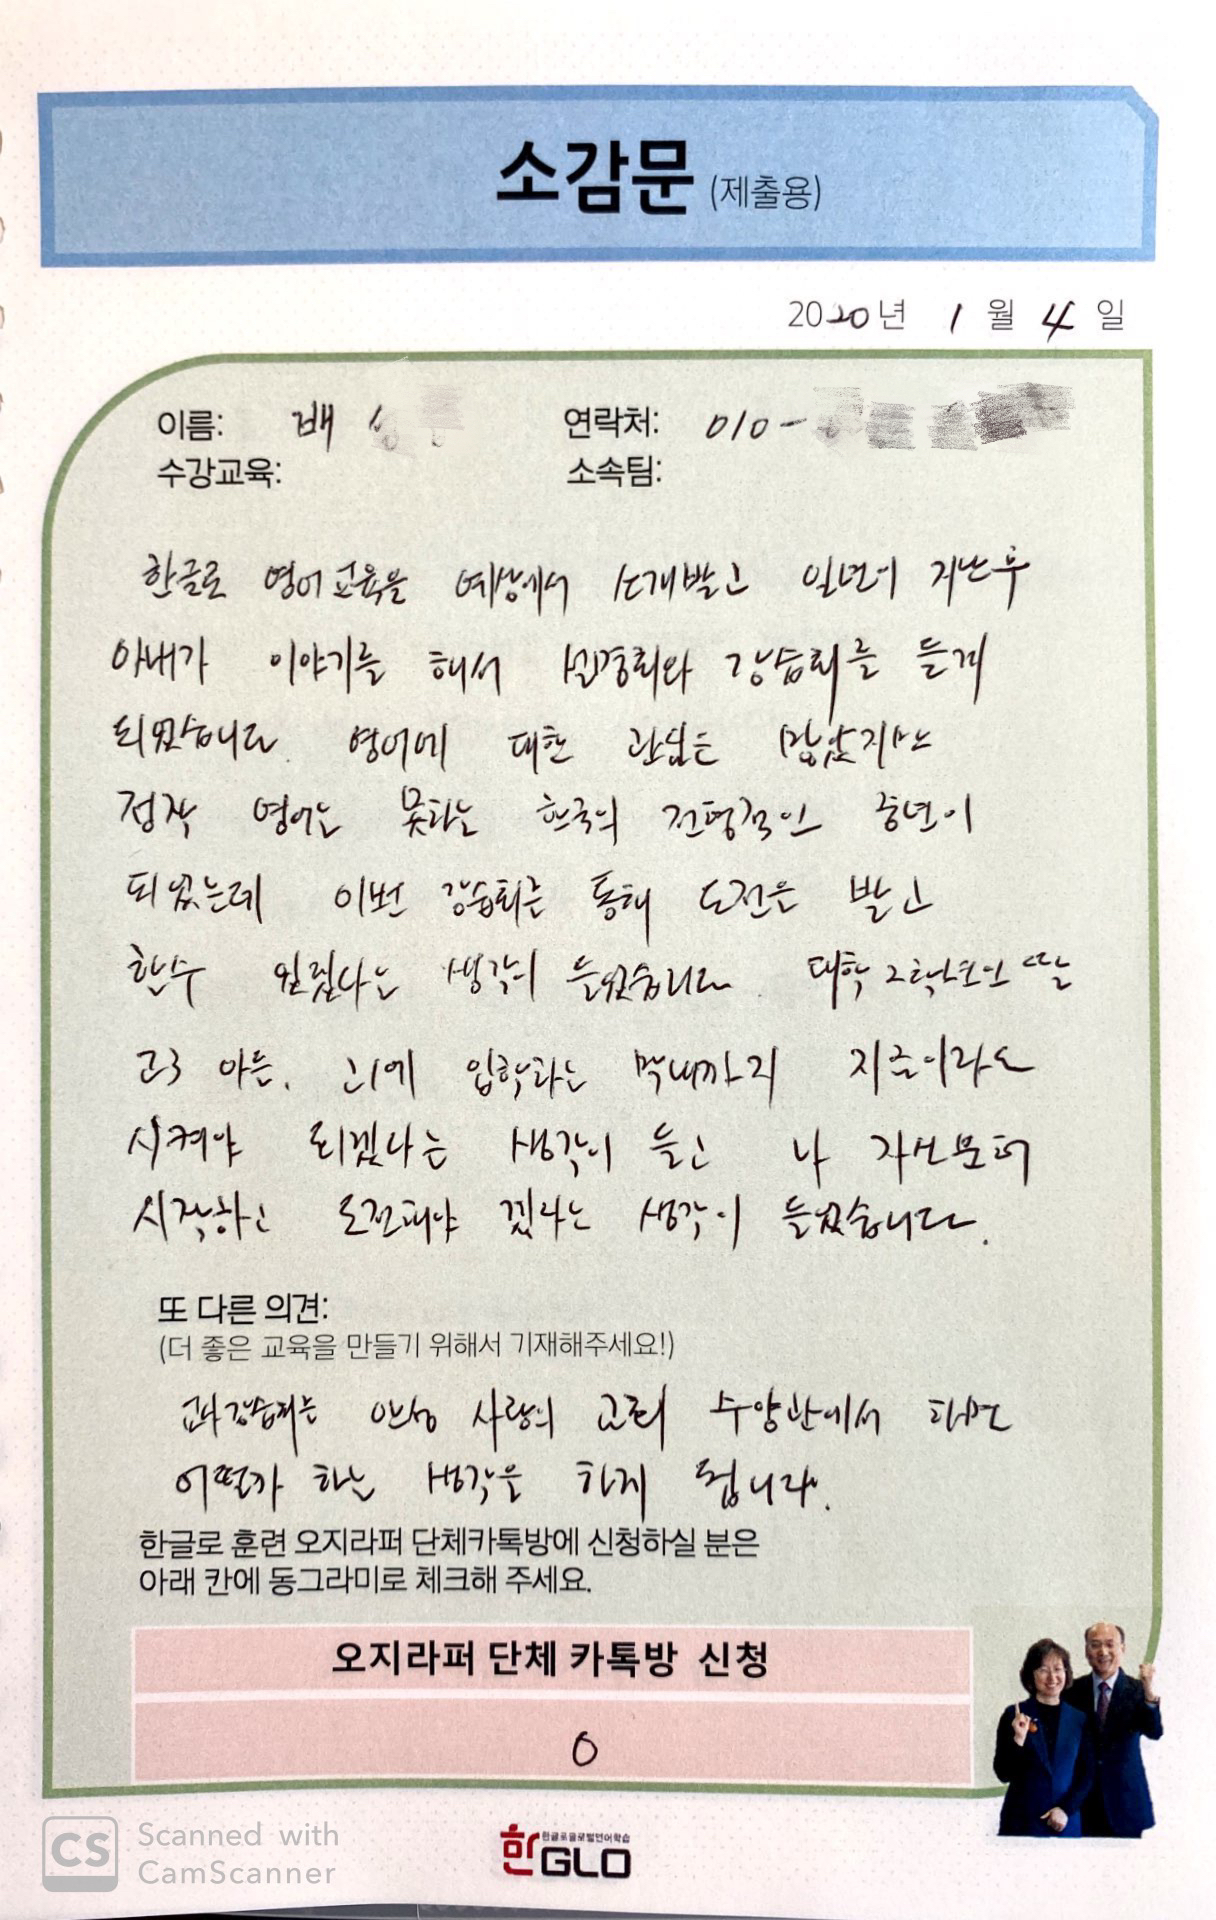 소감문 (제출용)
2020년 1월 4일
이름: 배 연락처: 010-
수강교육: 소속팀:
한글로 영어교육을 예상에서 소개받고 일년이 지난후
아내가 이야기를 해서 설경회와 강습회를 듣게
되었습니다. 영어에 대한 관심은 많았지만
정작 영어는 못하는 한국의 전형적인 중년이
되었는데 이번 강습회를 통해 도전을 받고
한수 있겠다는 생각이 들었습니다. 대학 2학년인 딸
고3 아들, 고1에 입학하는 막내까지 지금이라도
시켜야 되겠다는 생각이 들고 나 자신부터
시작하고 도전해야 겠다는 생각이 들었습니다.
또 다른 의견:
(더 좋은 교육을 만들기 위해서 기재해주세요!)
교사강습회는 안성 사랑의 교회 수양관에서 하면
어떨까 하는 생각을 하게 됩니다.
한글로 훈련 오지라퍼 단체카톡방에 신청하실 분은
아래 칸에 동그라미로 체크해 주세요.
오지라퍼 단체 카톡방 신청
O
CS Scanned with
CamScanner
한글로글로벌언어학습
한GLO